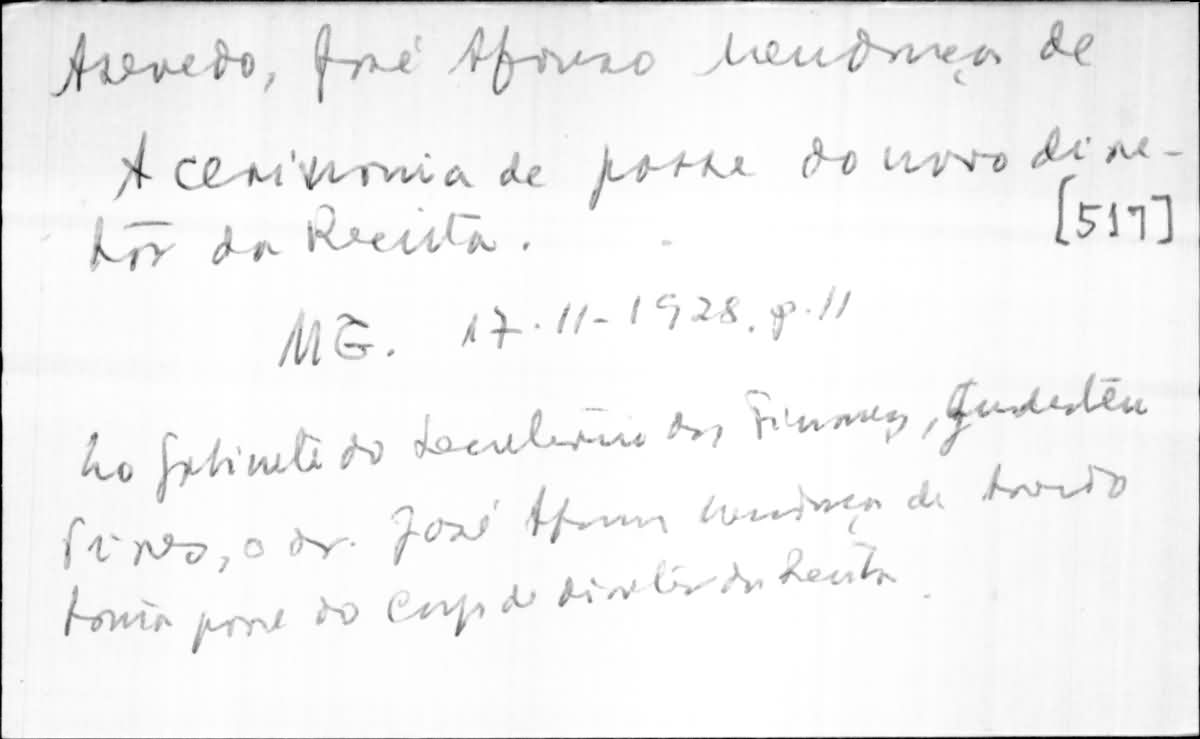 Azevedo, José Afonso Mendonça de
A cerimonia de posse do novo dire-
tôr da Receita.
[517]
MG. 17-11-1928. p.11
No Gabinete do Secretário das Finanças, Gudesteu
Pires, o dr. José Afonso Mendonça de Azevedo
toma posse do cargo de diretor da Receita.